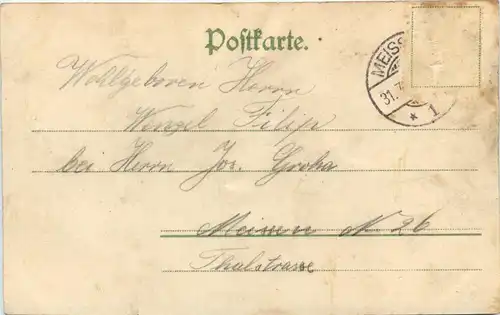 Postkarte.
MEISS
31. 7
* 1
Wohlgeboren Herrn
Wenzel Filip
bei Herrn Jos. Groha
Meissen N 26
Thalstrasse